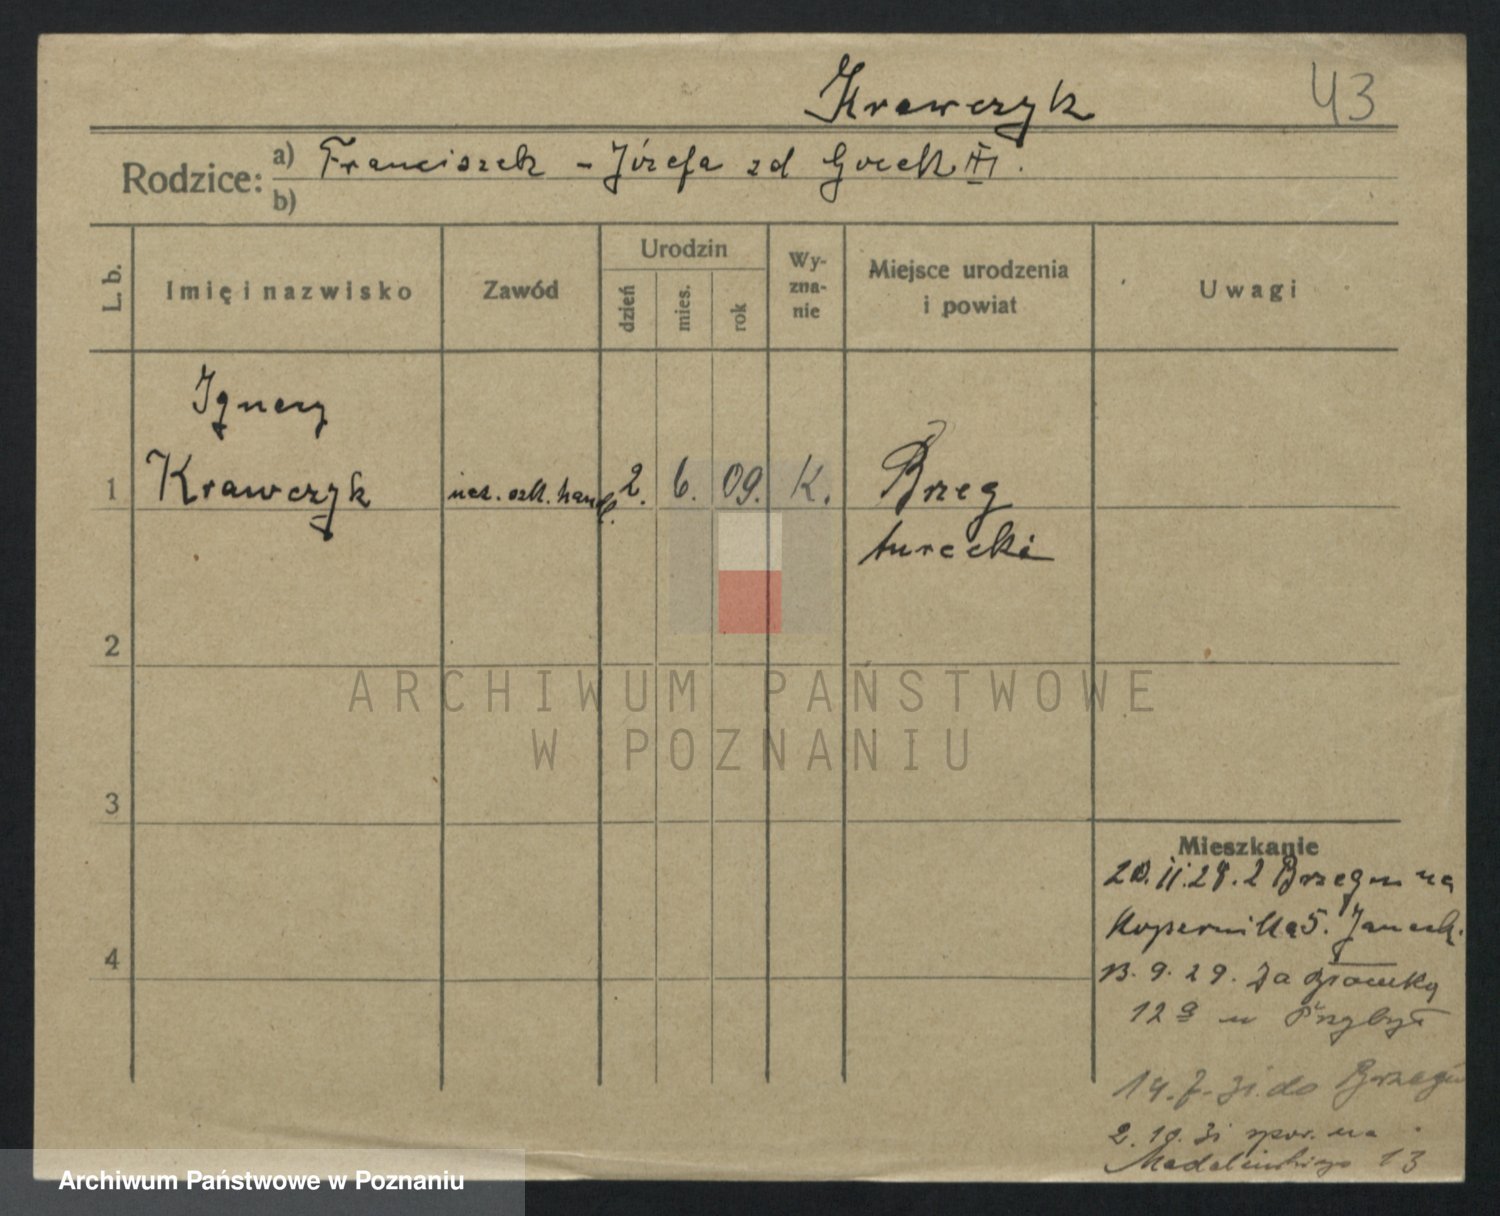 Krawczyk
43
Rodzice: a) Franciszek - Józefa zd
b)
L. b.
Imię i nazwisko
Zawód
Urodzin
dzień
mies.
rok
Wy-
zna-
nie
Miejsce urodzenia
i powiat
Uwagi
Ignacy
1 Krawczyk ucz. szk. handl. 2. 6. 09. K. Brzeg
turecki
2
ARCHIWUM PAŃSTWOWE
W POZNANIU
3
4
Mieszkanie
20.11.28. z Brzegu na
Kopernika 5.
13.9.29. Za Bramką
12a u Przybył
14.7.31. do Brzegu
2.10.31 spow. na
Madalińskiego 13
Archiwum Państwowe w Poznaniu